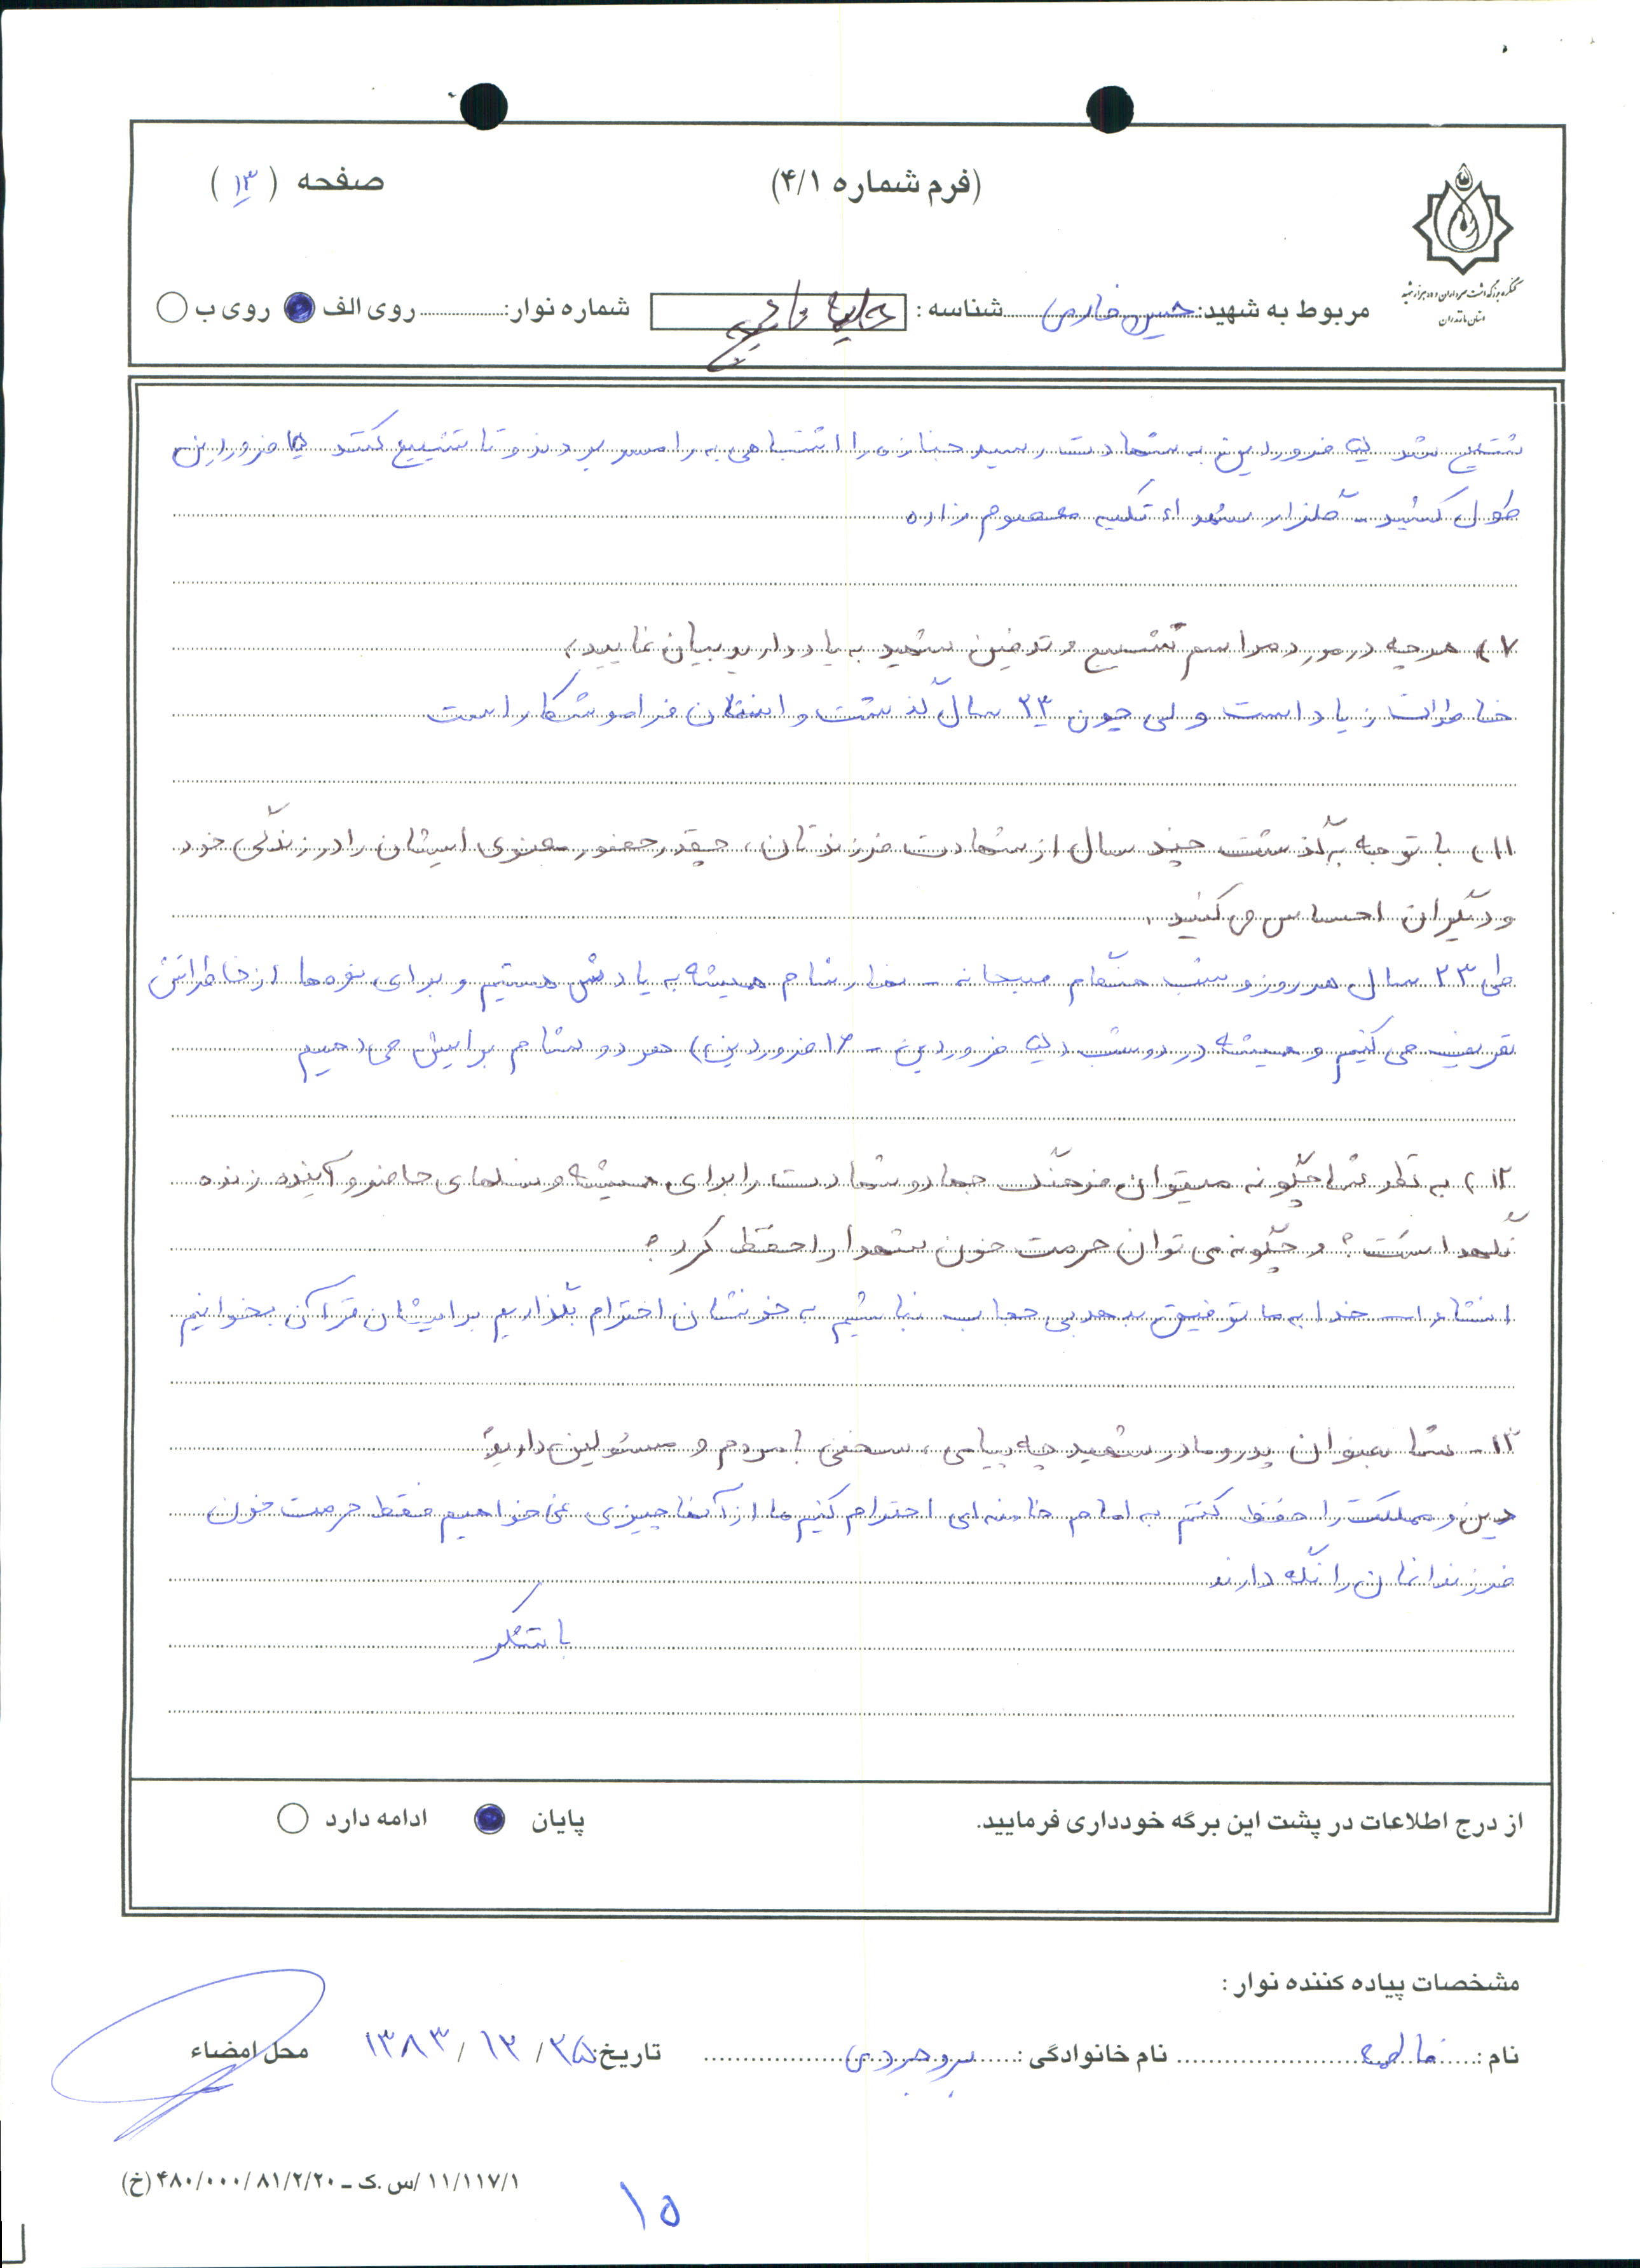 (فرم شماره ۴/۱)
صفحه (۱۳)
کنگره بزرگداشت سرداران و ده هزار شهید
استان مازندران
مربوط به شهید: حسین خارمی شناسه : شماره نوار: روی الف روی ب
تشیع شد فروردین به شهادت رسید جنازه را اشتباهی به رامسر بردند و تا تشییع کنند فروردین
طول کشید - گلزار شهداء تکیه معصوم زاده
۷) هرچه در مورد مراسم تشییع و تدفین شهید به یاد دارید بیان نمایید؟
خاطرات زیاد است ولی چون ۲۳ سال گذشت و انسان فراموشکار است
۱۱) با توجه به گذشت چند سال از شهادت فرزندتان، چقدر حضور معنوی ایشان را در زندگی خود
و دیگران احساس می کنید.
طی ۲۳ سال هر روز و شب هنگام صبحانه - نهار شام همیشه به یادش هستیم و برای نوه ها از خاطراتش
تعریف می کنیم و همیشه در دو شب فروردین - ۱۶ فروردین) هر دو شام برایش می دهیم
۱۲) به نظر شما چگونه میتوان فرهنگ جهاد و شهادت را برای همیشه و نسلهای حاضر و آینده زنده
نگهداشت؟ و چگونه می توان حرمت خون شهدا را حفظ کرد؟
انشاءالله خدا به ما توفیق بدهد بی حجاب نباشیم به خونشان احترام بگذاریم برایشان قرآن بخوانیم
۱۳- شما بعنوان پدر و مادر شهید چه پیامی، سخنی با مردم و مسئولین دارید؟
دین و مملکت را حفظ کنتم به امام خامنه ای احترام کنیم ما از آنها چیزی نمی خواهیم فقط حرمت خون
فرزندانمان را نگه دارند
با تشکر
از درج اطلاعات در پشت این برگه خودداری فرمایید.
پایان ادامه دارد
مشخصات پیاده کننده نوار :
نام : فاطمه نام خانوادگی : بروجردی تاریخ: ۲۵/ ۱۲/ ۱۳۸۳ محل امضاء
۱۱/۱۱۷/۱ /س.ک ـ ۴۸۰/۰۰۰/۸۱/۲/۲۰ (خ)
۱۵